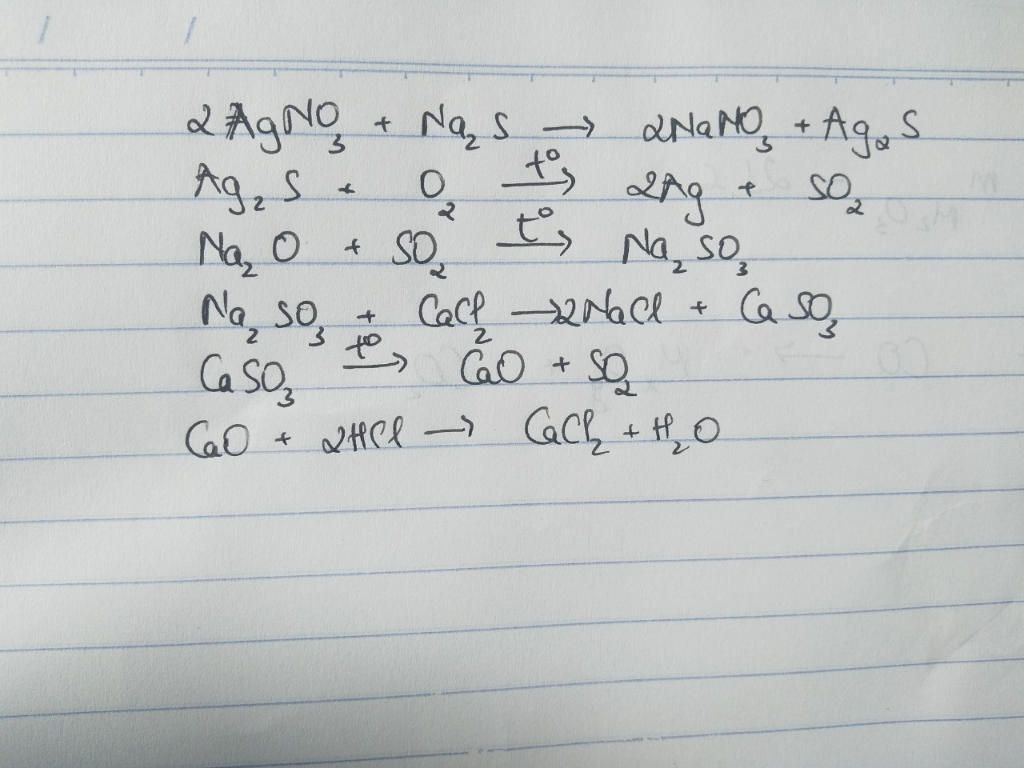 2AgNO₃ + Na₂S → 2NaNO₃ + Ag₂S
Ag₂S + O₂ →(t°) 2Ag + SO₂
Na₂O + SO₂ →(t°) Na₂SO₃
Na₂SO₃ + CaCl₂ → 2NaCl + CaSO₃
CaSO₃ →(t°) CaO + SO₂
CaO + 2HCl → CaCl₂ + H₂O